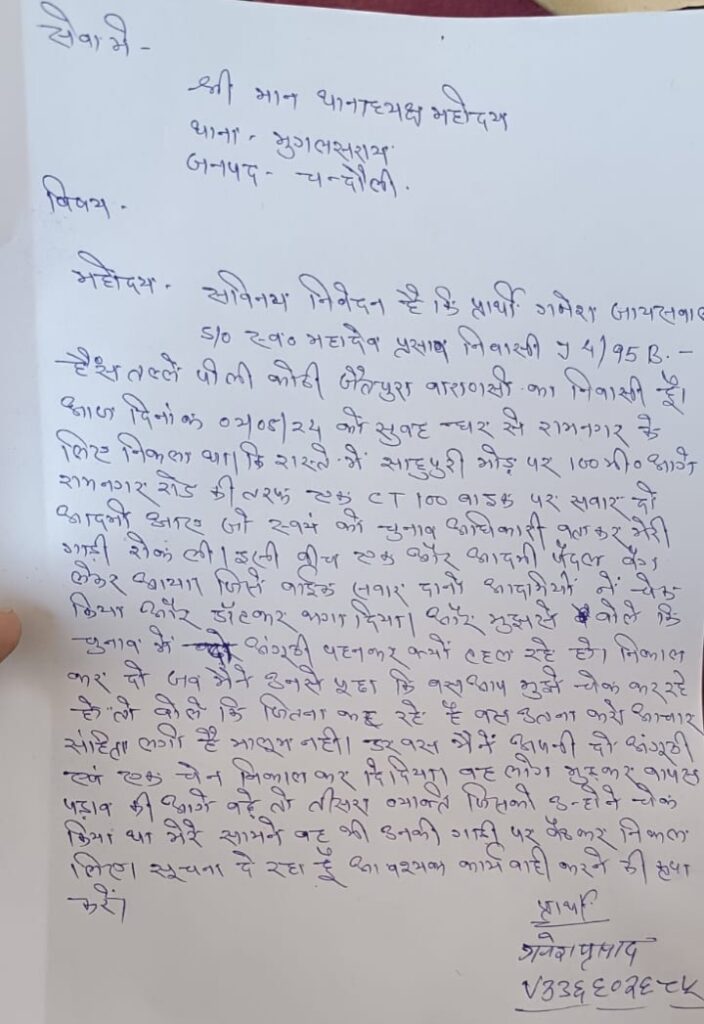 सेवा मे -
श्री मान थानाध्यक्ष महोदय
थाना - मुगलसराय
जनपद - चन्दौली.
विषय -
महोदय - सविनय निवेदन है कि प्रार्थी गनेश जायसवाल
S/० स्व० महादेव प्रसाद निवासी J 4/95 B. -
तल्ले पीली कोठी जैतपुरा वाराणसी का निवासी हूँ।
आज दिनांक को सुवह घर से रामनगर के
लिए निकला था। कि रास्ते में साहुपुरी मोड़ पर 100 मी० आगे
रामनगर रोड की तरफ एक CT 100 बाइक पर सवार दो
आदमी आए जो स्वयं को चुनाव अधिकारी बताकर मेरी
गाड़ी रोक ली। इसी बीच एक और आदमी पैदल बैग
लेकर आया जिसे बाइक सवार दोनो आदमियों ने चेक
किया और डाँटकर भगा दिया। और मुझसे बोले कि
चुनाव में अंगूठी पहनकर क्यों टहल रहे हो। निकाल
कर दो जब मैने उनसे पूछा कि क्या आप मुझे चेक कर रहे
है तो बोले कि जितना कह रहे है बस उतना करो आचार
संहिता लगी है मालूम नही। डर वस मैने अपनी दो अंगूठी
एवं एक चेन निकाल कर दे दिया। वह लोग मुड़कर वापस
पड़ाव की आगे बढ़े तो तीसरा व्यक्ति जिसको उन्होने चेक
किया था मेरे सामने वह भी उनकी गाड़ी पर बैठकर निकल
लिए। सूचना दे रहा हूँ आवश्यक कार्यवाही करने की कृपा
करें।
प्रार्थी
गनेश प्रसाद